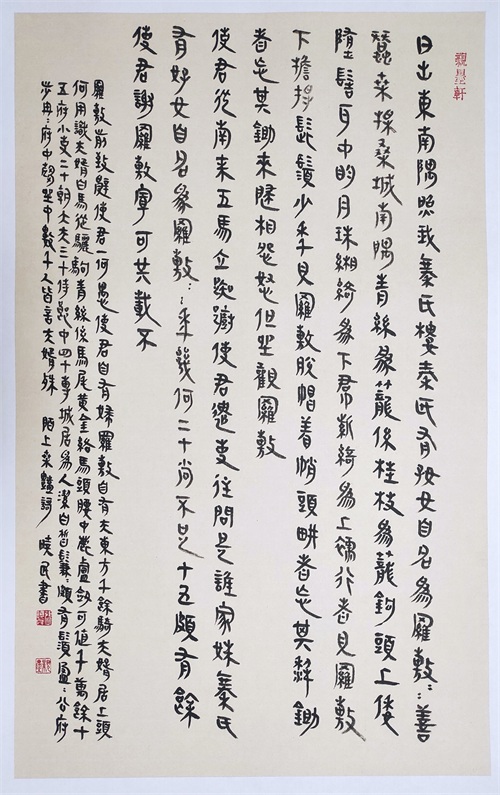 日出東南隅照我秦氏樓秦氏有好女自名為羅敷：善
蠶桑採桑城南隅青絲為籠係桂枝為籠鉤頭上倭
墮髻耳中明月珠緗綺為下帬紫綺為上襦行者見羅敷
下擔捋髭鬚少年見羅敷脫帽着帩頭畊者忘其犂鋤
者忘其鋤來歸相怨怒但坐觀羅敷
使君從南來五馬立踟躕使君遣吏往問是誰家姝秦氏
有好女自名為羅敷：年幾何二十尚不足十五頗有餘
使君謝羅敷寧可共載不
羅敷前致辭使君一何愚使君自有婦羅敷自有夫東方千餘騎夫婿居上頭
何用識夫婿白馬從驪駒青絲係馬尾黃金絡馬頭腰中鹿盧劍可值千萬餘十
五府小吏二十朝大夫三十侍中郎四十專城居為人潔白皙鬑：頗有鬚盈：公府
步冉：府中趨坐中數千人皆言夫婿殊 陌上桑豔詩 曉民書